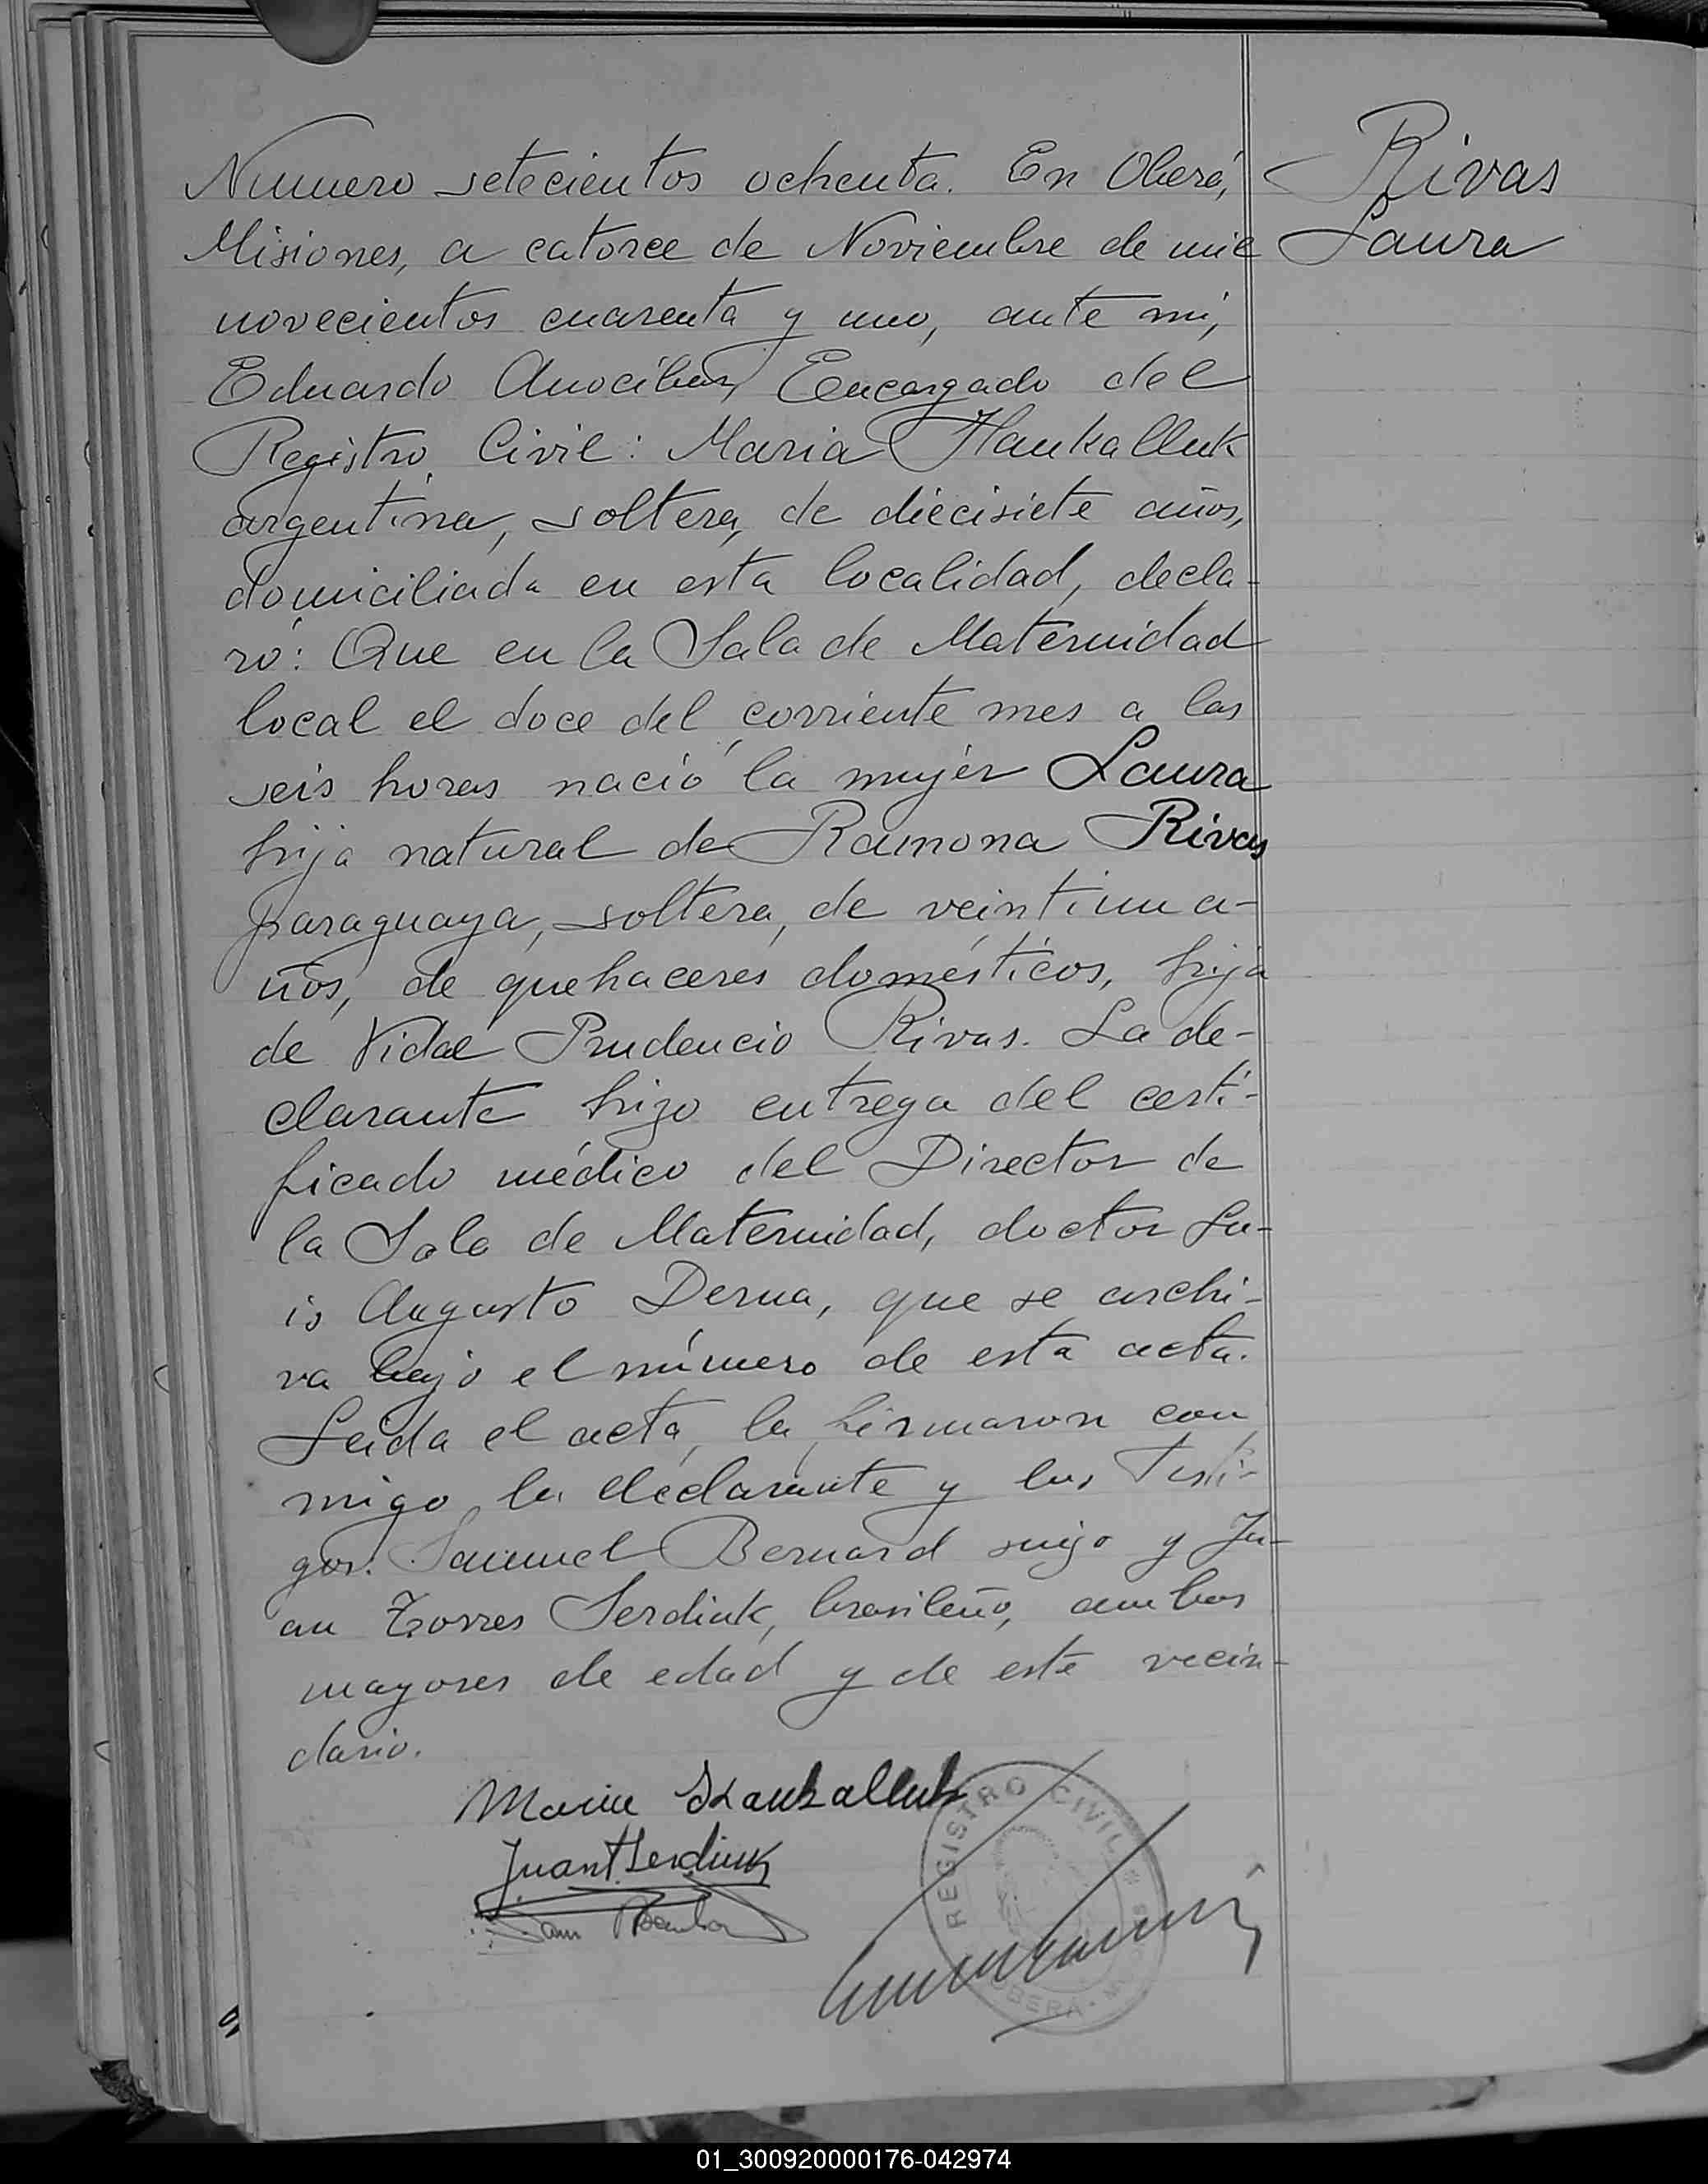 Numero setecientos ochenta. En Oberá,
Misiones, a catorce de Noviembre de mil
novecientos cuarenta y uno, ante mi,
Eduardo Anocibar, Encargado del
Registro Civil: Maria Haukalluk
argentina, soltera, de diecisiete años,
domiciliada en esta localidad, decla-
ró: Que en la Sala de Maternidad
local el doce del corriente mes a las
seis horas nació la mujer Laura
hija natural de Ramona Rivas
paraguaya, soltera, de veintiun a-
ños, de quehaceres domésticos, hija
de Vidal Prudencio Rivas. La de-
clarante hizo entrega del certi-
ficado médico del Director de
la Sala de Maternidad, doctor Lu-
is Augusto Derna, que se archi-
va bajo el número de esta acta.
Leida el acta, la firmaron con
migo la declarante y los testi-
gos: Samuel Bernard suizo y Ju-
an Torres Serdiuk, brasileño, ambos
mayores de edad y de este vecin-
dario.
Rivas
Laura
Maria
Juan T. Serdiuk
REGISTRO CIVIL
OBERÁ
01_300920000176-042974